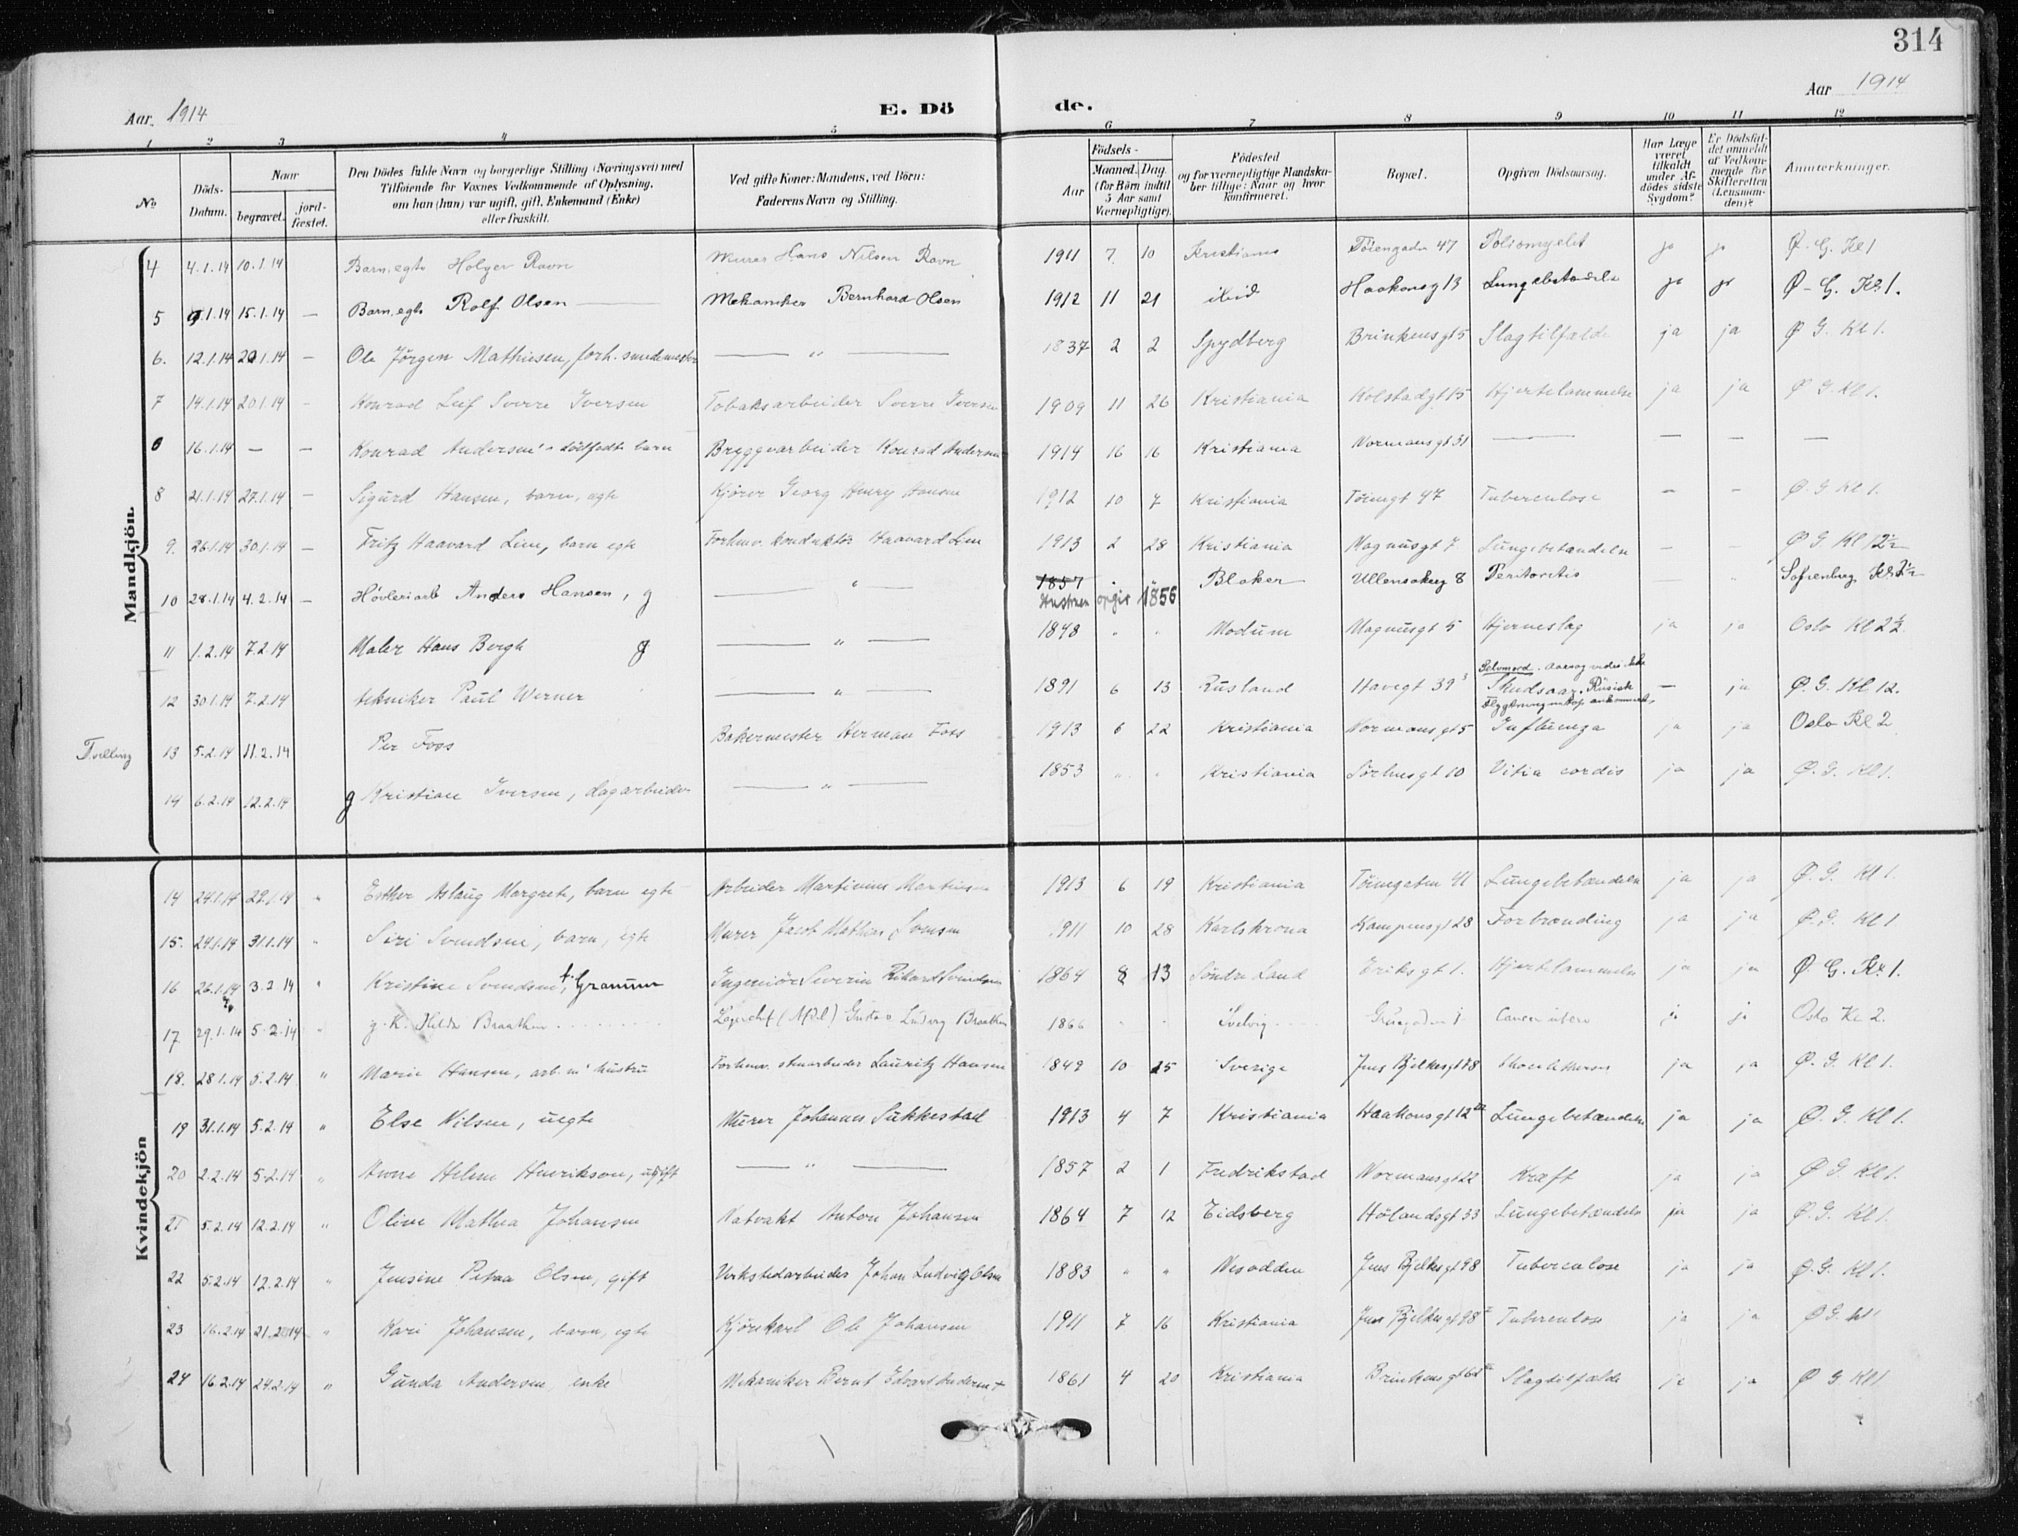 314
Aar 1914 E. Dö de. Aar 1914
1 2 3 4 5 6 7 8 9 10 11 12
No
Döds-Datum.
Naar
begravet.
jord-fæstet.
Den Dödes fulde Navn og borgerlige Stilling (Næringsvei) med
Tilføiende for Voxnes Vedkommende af Oplysning,
om han (hun) var ugift, gift, Enkemand (Enke)
eller fraskilt.
Ved gifte Koner: Mandens, ved Börn:
Faderens Navn og Stilling.
Födsels-
Aar
Maaned. Dag.
(for Börn indtil
5 Aar samt
Værnepligtige).
Födested
og for værnepligtige Mandska-
ber tillige: Naar og hvor
konfirmeret.
Bopæl.
Opgiven Dödsaarsag.
Har Læge
været
tilkaldt
under Af-
dödes sidste
Sygdom?
Er Dödsfal-
det anmeldt
af Vedkom-
mende for
Skifteretten
(Lensman-
den)?
Anmerkninger.
Mandkjön.
4 4.1.14 10.1.14 Barn, egte Holger Ravn Murer Hans Nilsen Ravn 1911 7 10 Kristiania Töiengaden 47 Poliomyelit ja ja Ø. G. Kl 1
5 9.1.14 15.1.14 — Barn, egte Rolf Olsen Mekaniker Bernhard Olsen 1912 11 21 ibid Haakonsg 13 Lungebetændelse ja ja Ø. G. Kl. 1.
6. 12.1.14 20.1.14 — Ole Jörgen Mathiesen, forh. smedemester — " — 1837 2 2 Spydberg Brinkensgt 5 Slagtilfælde ja ja Ø G. Kl 1.
7 14.1.14 20.1.14 - Konrad Leif Sverre Iversen Tobaksarbeider Sverre Iversen 1909 11 26 Kristiania Kolstadgt 15 Hjertelammelse ja ja Ø G. Kl 1.
0 16.1.14 — — Konrad Andersen's dödfödt barn Bryggearbeider Konrad Andersen 1914 16 16 Kristiania Normansgt 31 — — — —
8 21.1.14 27.1.14 — Sigurd Hansen, barn, egte Kjörer Georg Henry Hansen 1912 10 7 Kristiania Töiengt 47 Tuberculose — — Ø. G Kl 1.
9. 26.1.14 30.1.14 — Fritz Haavard Lien, barn egte Forhenv. konduktör Haavard Lien 1913 2 28 Kristiania Magnusgt 7 Lungebetændelse — — Ø G Kl 12
10 28.1.14 4.2.14 — Hövleriarb Anders Hansen, g — " — 1857 Hustruen opgir 1856 Blaker Ullensakerg 8 Peritonitis — " Sofienberg Kl.
11 1.2.14 7.2.14 Maler Hans Bergh g — " — 1848 " " Modum Magnusgt 5 Hjerneslag ja ja Oslo Kl 2
12 30.1.14 7.2.14 tekniker Paul Werner — " — 1891 6 13 Rusland Havegt 39 Selvmord. Aarsag vides ikke Skudsaar. Russisk — ja Ø. G. Kl 12.
Tvilling 13 5.2.14 11.2.14 Per Foss Bakermester Herman Foss 1913 6 22 Kristiania Normansgt 5 Influenza ja ja Oslo Kl 2
14 6.2.14 12.2.14 g Kristian Iversen, dagarbeider — " — 1853 " " Kristiania Sörhusgt 10 Vitia cordis ja ja Ø. G. Kl 1.
Kvindekjön
14 24.1.14 29.1.14 " Esther Aslaug Margrete, barn egte Arbeider Martinius Martinsen 1913 6 19 Kristiania Töiengaten 41 Lungebetændelse ja ja Ø. G. Kl 1.
15. 24.1.14 31.1.14 " Siri Svendsen, barn, egte Murer Jacob Mathias Svensen 1911 10 28 Karlskrona Kampensgt 28 Forbrænding ja ja Ø. G. Kl 1
16 26.1.14 3.2 14 " Kristine Svendsen, f. Granum Ingeniör Severin Rikart Svendsen 1864 8 13 Söndre Land Eriksgt 1. Hjertelammelse ja ja Ø. G. Kl. 1.
17 29.1.14 5.2.14 " g. K. Hilda Braathen Gustav Ludvig Braathen 1866 - - Svelvig Cancer uteri ja ja Oslo Kl 2.
18. 28.1.14 5.2.14 " Marie Hansen, arb. m' hustru Forhenv. stenarbeider Lauritz Hansen 1849 10 25 Sverige Jens Bjelkesgt ja ja Ø. G. Kl 1.
19 31.1.14 5.2.14 " Else Nilsen, uegte Murer Johannes Sukkestad 1913 4 7 Kristiania Haakonsgt 12 Lungebetændelse ja ja Ø. G. Kl 1.
20 2.2.14 5.2.14 " Anna Helene Henriksen, ugift — " — 1857 2 1 Fredrikstad Normansgt 22 Kræft ja ja Ø G. Kl 1.
21 5.2.14 12.2.14 " Olive Mathea Johansen Natvakt Anton Johansen 1864 7 12 Eidsberg Hölandsgt 33 Lungebetændelse ja ja Ø. G. Kl 1.
22 5.2.14 12.2.14 " Jensine Petrea Olsen, gift Verkstedarbeider Johan Ludvig Olsen 1883 " " Nesodden Jens Bjelkesgt 98 Tuberculose ja ja Ø. G. Kl 1.
23 16.2.14 21.2.14 " Kari Johansen, barn, egte Kjörekarl Ole Johansen 1911 7 16 Kristiania Jens Bjelkesgt 98 Tuberculose ja ja Ø G. Kl 1
24 16.2.14 24.2.14 " Gunda Andersen enke Mekaniker Bernt Edvart Andersen + 1861 4 20 Kristiania Brinkensgt Slagtilfælde ja ja Ø G Kl 1